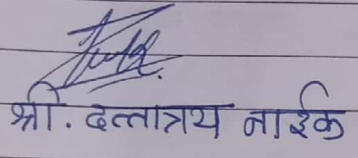 श्री. दत्तात्रय नाईक